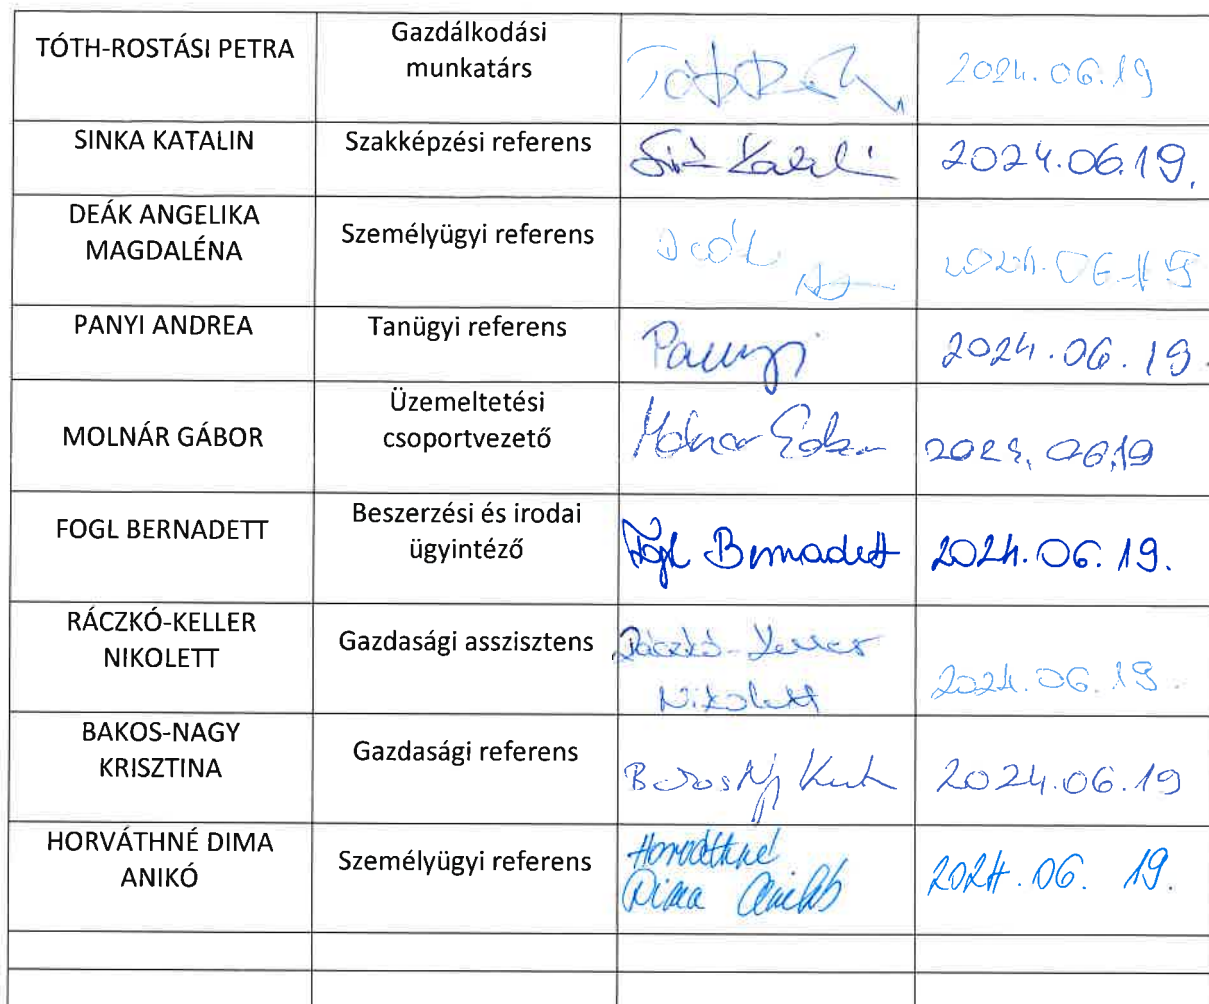 TÓTH-ROSTÁSI PETRA
Gazdálkodási
munkatárs
2024.06.19
SINKA KATALIN
Szakképzési referens
2024.06.19.
DEÁK ANGELIKA
MAGDALÉNA
Személyügyi referens
Deák
2024.06.19
PANYI ANDREA
Tanügyi referens
Panyi
2024.06.19.
MOLNÁR GÁBOR
Üzemeltetési
csoportvezető
Molnár Gábor
2024.06.19
FOGL BERNADETT
Beszerzési és irodai
ügyintéző
Fogl Bernadett
2024.06.19.
RÁCZKÓ-KELLER
NIKOLETT
Gazdasági asszisztens
Ráczkó-Keller
Nikolett
2024.06.19.
BAKOS-NAGY
KRISZTINA
Gazdasági referens
2024.06.19
HORVÁTHNÉ DIMA
ANIKÓ
Személyügyi referens
Horváthné
Dima Anikó
2024.06. 19.